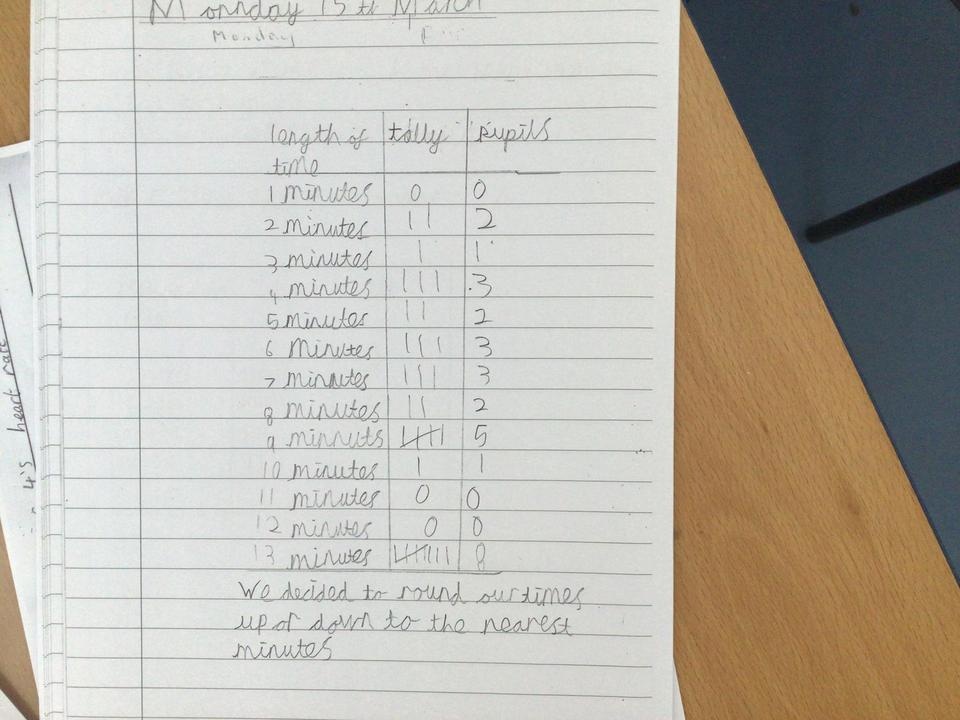 Monnday 15th March
Monday
length of tally pupils
time
1 minutes 0 0
2 minutes || 2
3 minutes | 1
4 minutes ||| 3
5 minutes || 2
6 Minutes ||| 3
7 minnutes ||| 3
8 minutes || 2
9 minnuts |||| 5
10 minutes | 1
11 minutes 0 0
12 minutes 0 0
13 minutes ||||||| 8
We decided to round our times
up or down to the nearest
minutes
4's heart rate